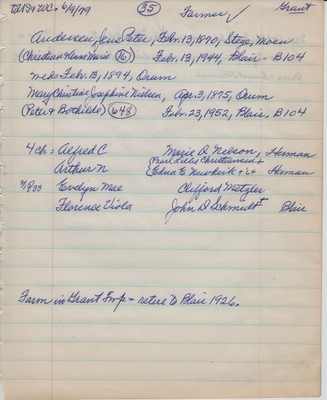 35 Farmer ✓ Grant
Andersen, Jens Peter, Feb. 13, 1870, Stege, Moen
(Christian & Anne Marie 76) Feb. 13, 1944, Blair - B104
med Feb. 13, 1894, Orum
Mary Christine Josephine Nielsen, Apr. 3, 1875, Orum
(Peter & Bothilde) 648 Feb. 23, 1952, Blair, B104
4 ch: Alfred C Marie D Nelson, Herman
Pearl Christiansen +
Arthur N Edna E Newkirk Herman
Evelyn Mae Clifford Metzler
Florence Viola John D Schmidt Blair
Farm in Grant Twp - retire to Blair 1926.